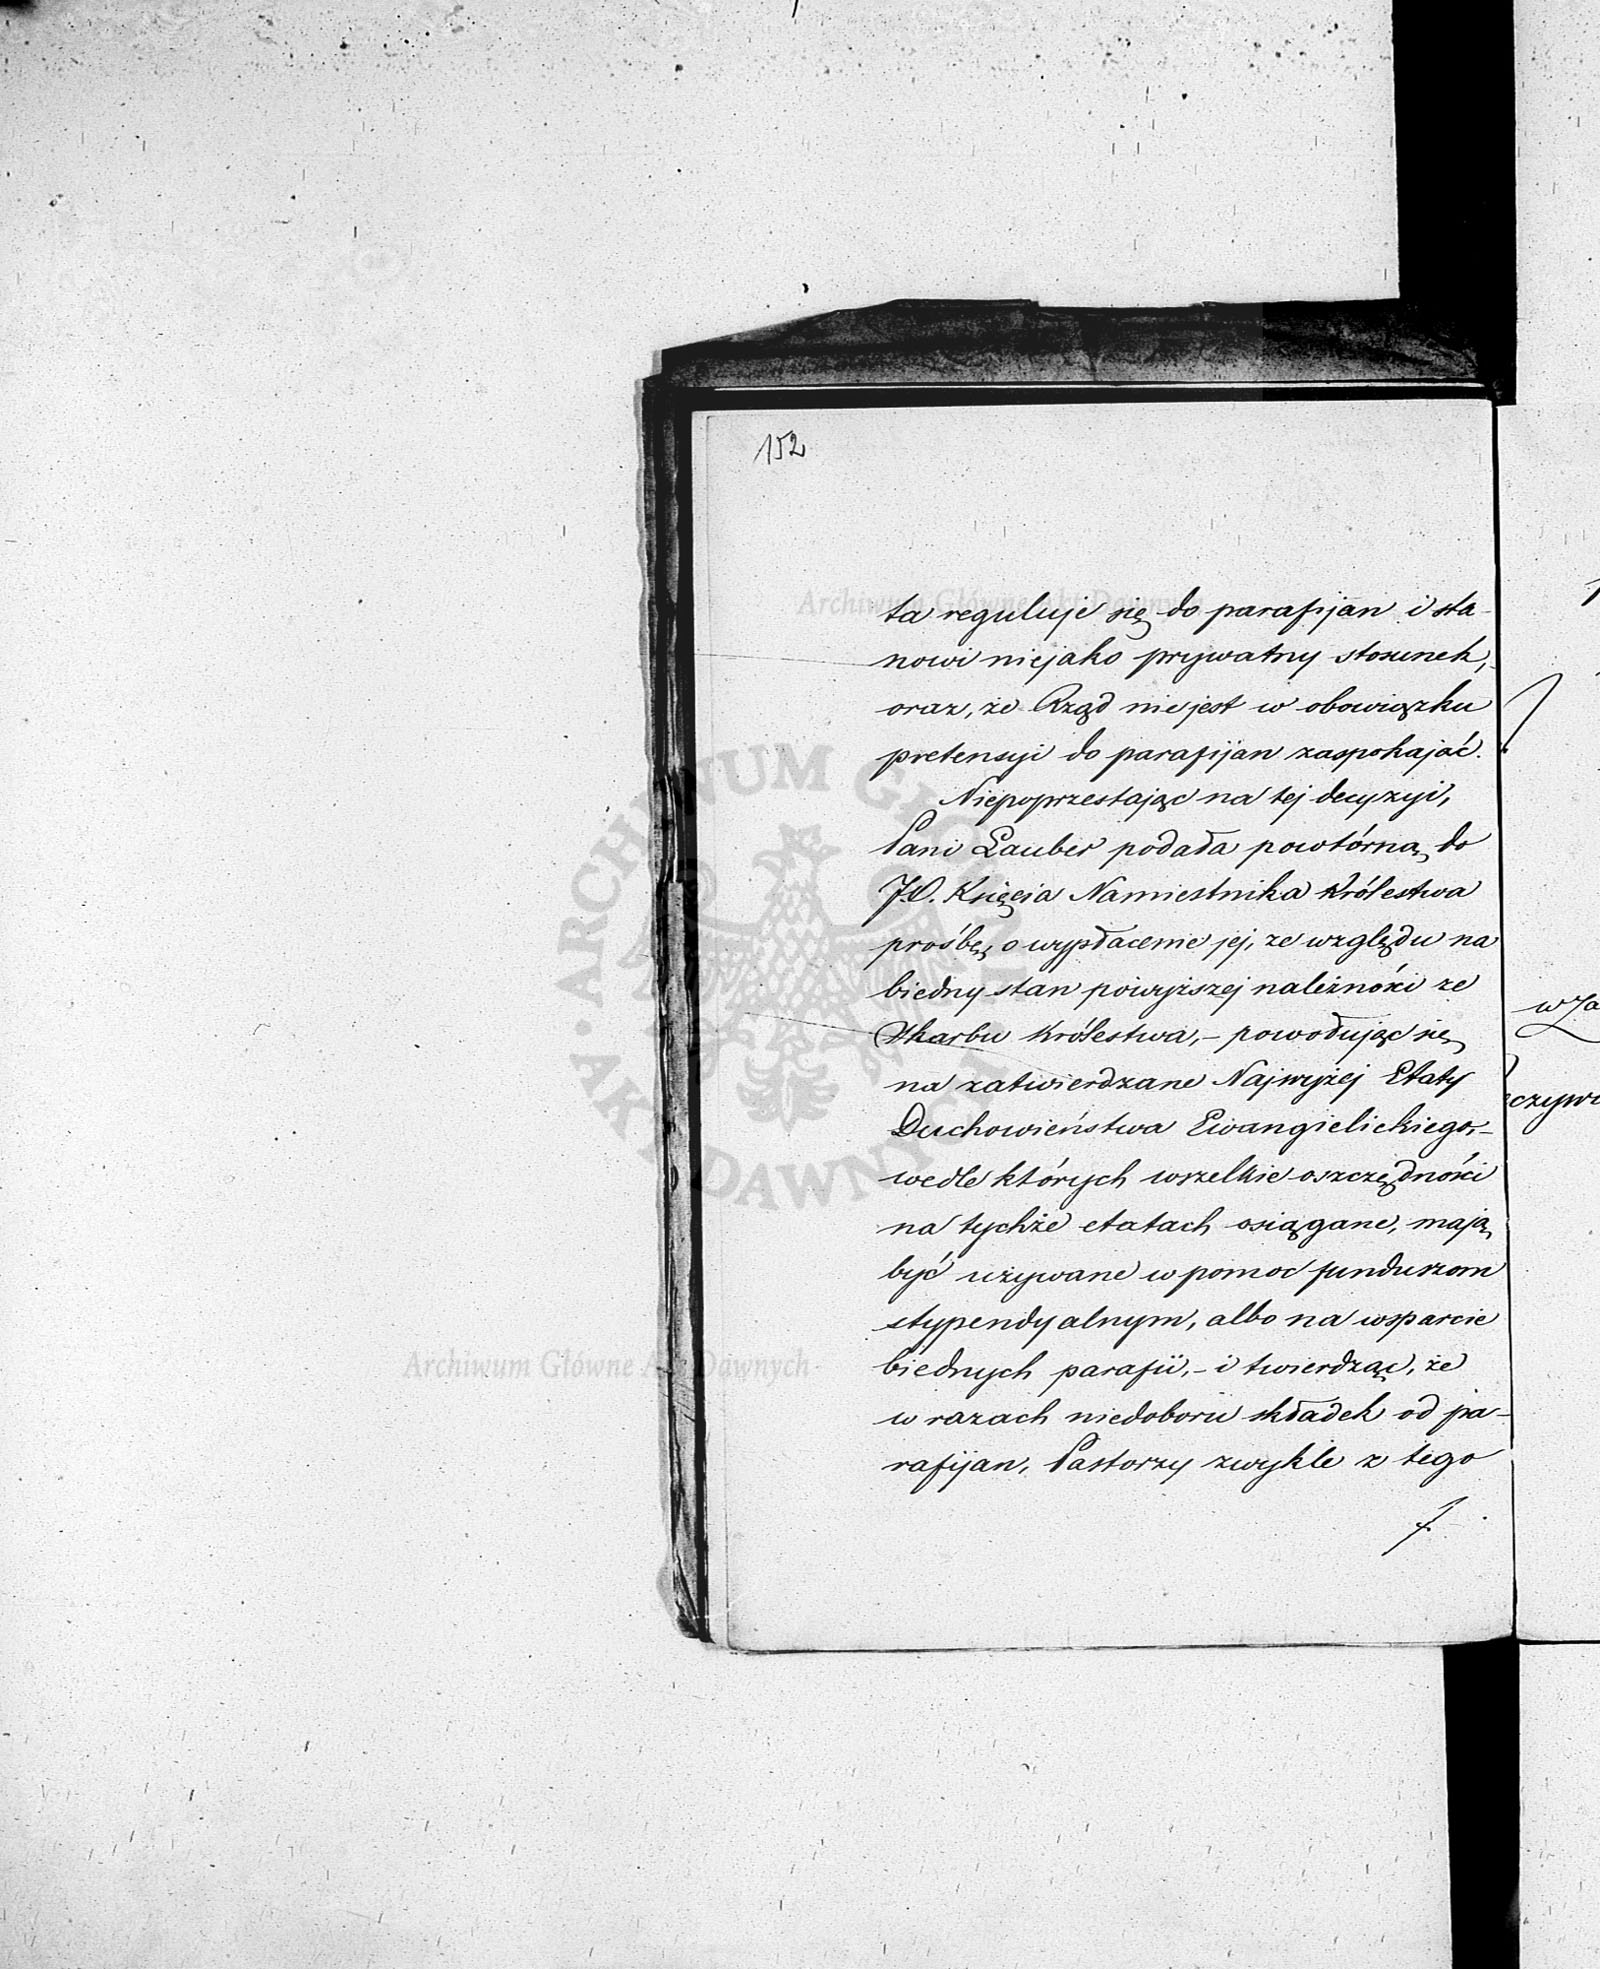 152
ta reguluje się do parafijan i sta-
nowi niejako prywatny stosunek,
oraz, że Rząd nie jest w obowiązku
pretensyi do parafijan zaspokajać.
Niepoprzestając na tej decyzyi,
Pani Lauber podała powtórną do
J.O. Księcia Namiestnika Królestwa
prośbę, o wypłacenie jej, ze względu na
biedny stan powyższej należności ze
Skarbu Królestwa,- powołując się
na zatwierdzane Najwyżej Etaty
Duchowieństwa Ewangielickiego,-
wedle których wszelkie oszczędności
na tychże etatach osiągane, mają
być używane w pomoc funduszom
stypendyalnym, albo na wsparcie
biednych parafii,- i twierdząc, że
w razach niedoboru składek od pa-
rafijan, Pastorzy zwykle z tego
Archiwum Główne Akt Dawnych
Archiwum Główne Akt Dawnych
ARCHIWUM GŁÓWNE · AKT DAWNYCH ·